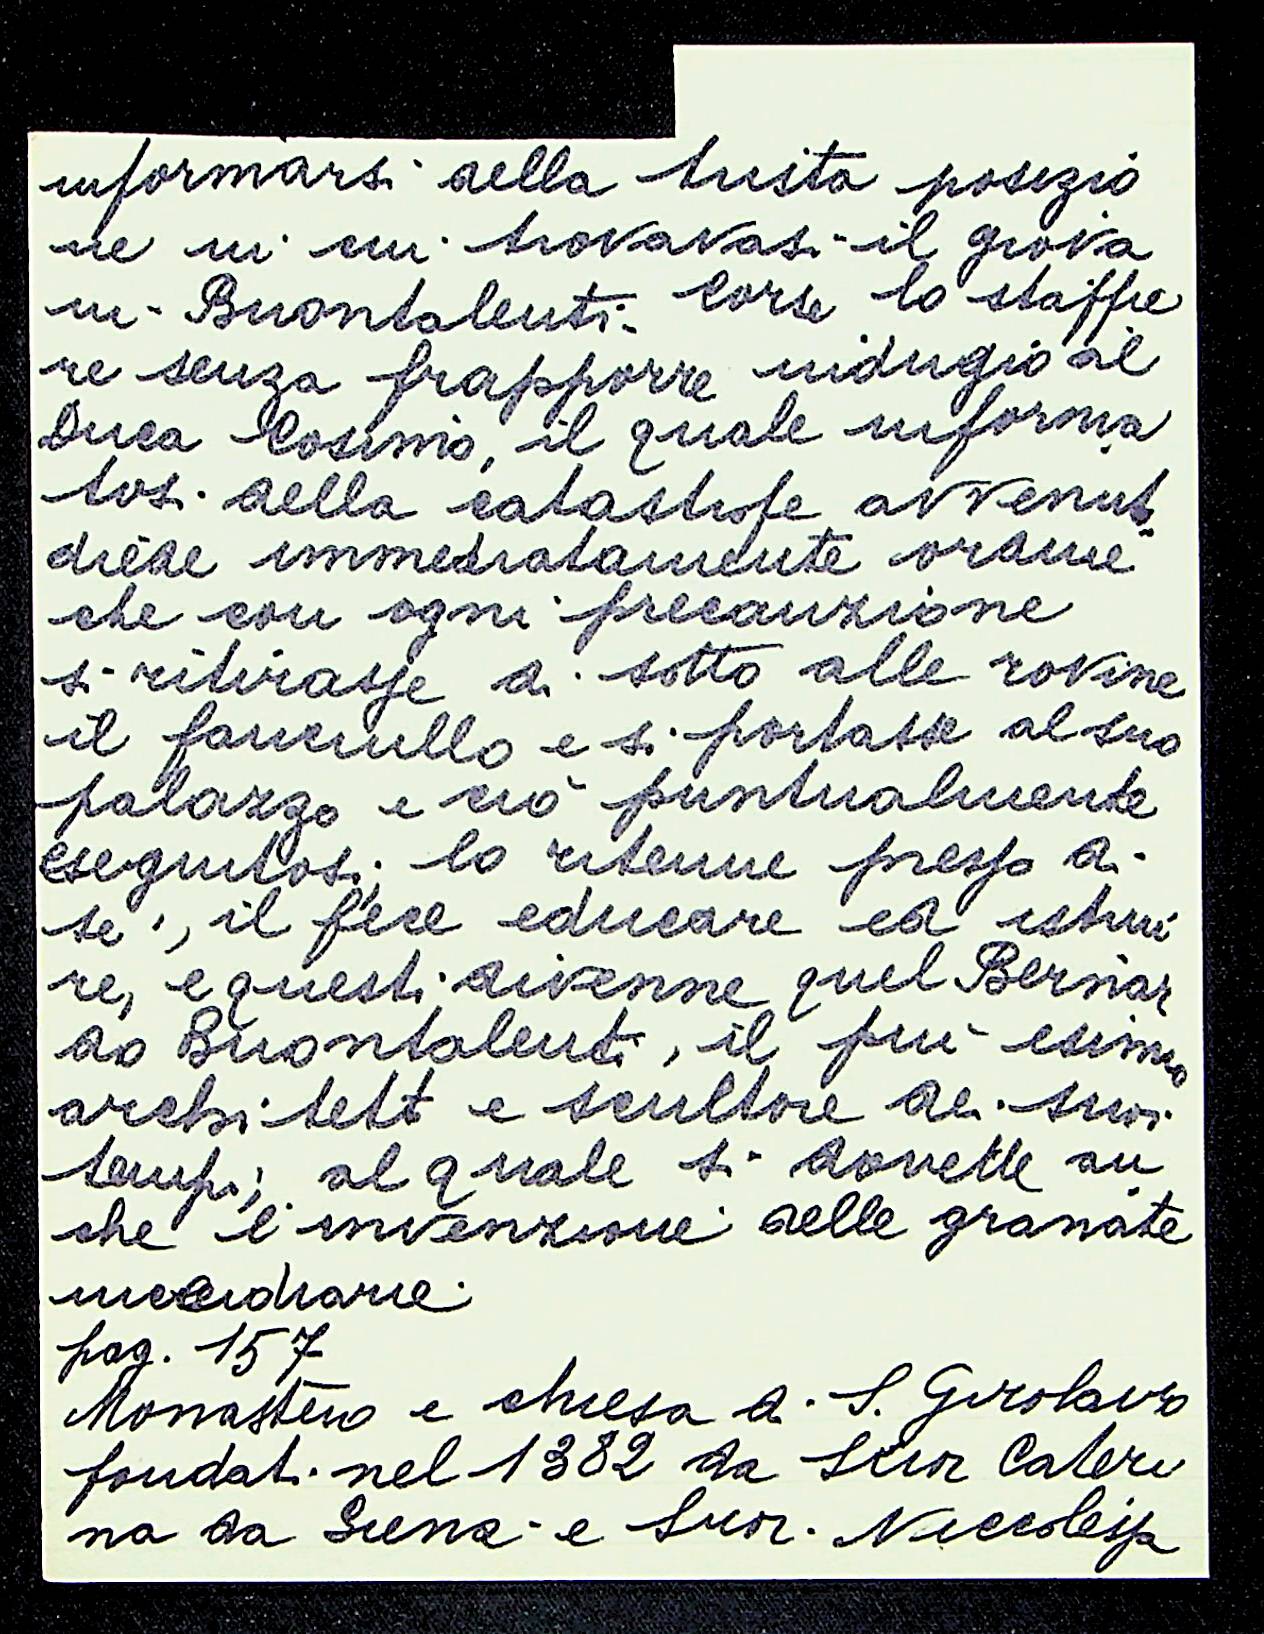 informarsi della trista posizio
ne in cui trovavasi il giova
ni Buontalenti. Corse lo staffie
re senza frapporre indugio al
Duca Cosimo, il quale informa
tosi della catastrofe avvenut
diede immediatamente ordine
che con ogni precauzione
si ritirasse di sotto alle rovine
il fanciullo e si portasse al suo
palazzo e ciò puntualmente
eseguitosi, lo ritenne presso di
se', il fece educare ed istrui
re, e questi divenne quel Bernar
do Buontalenti, il più esimio
architett e scultore de' suoi
tempi; al quale si dovette an
che l'invenzione delle granate
incendiarie.
pag. 157
Monastero e chiesa di S. Girolamo
fondati nel 1382 da Suor Cateri
na da Siena e Suor Niccolessa